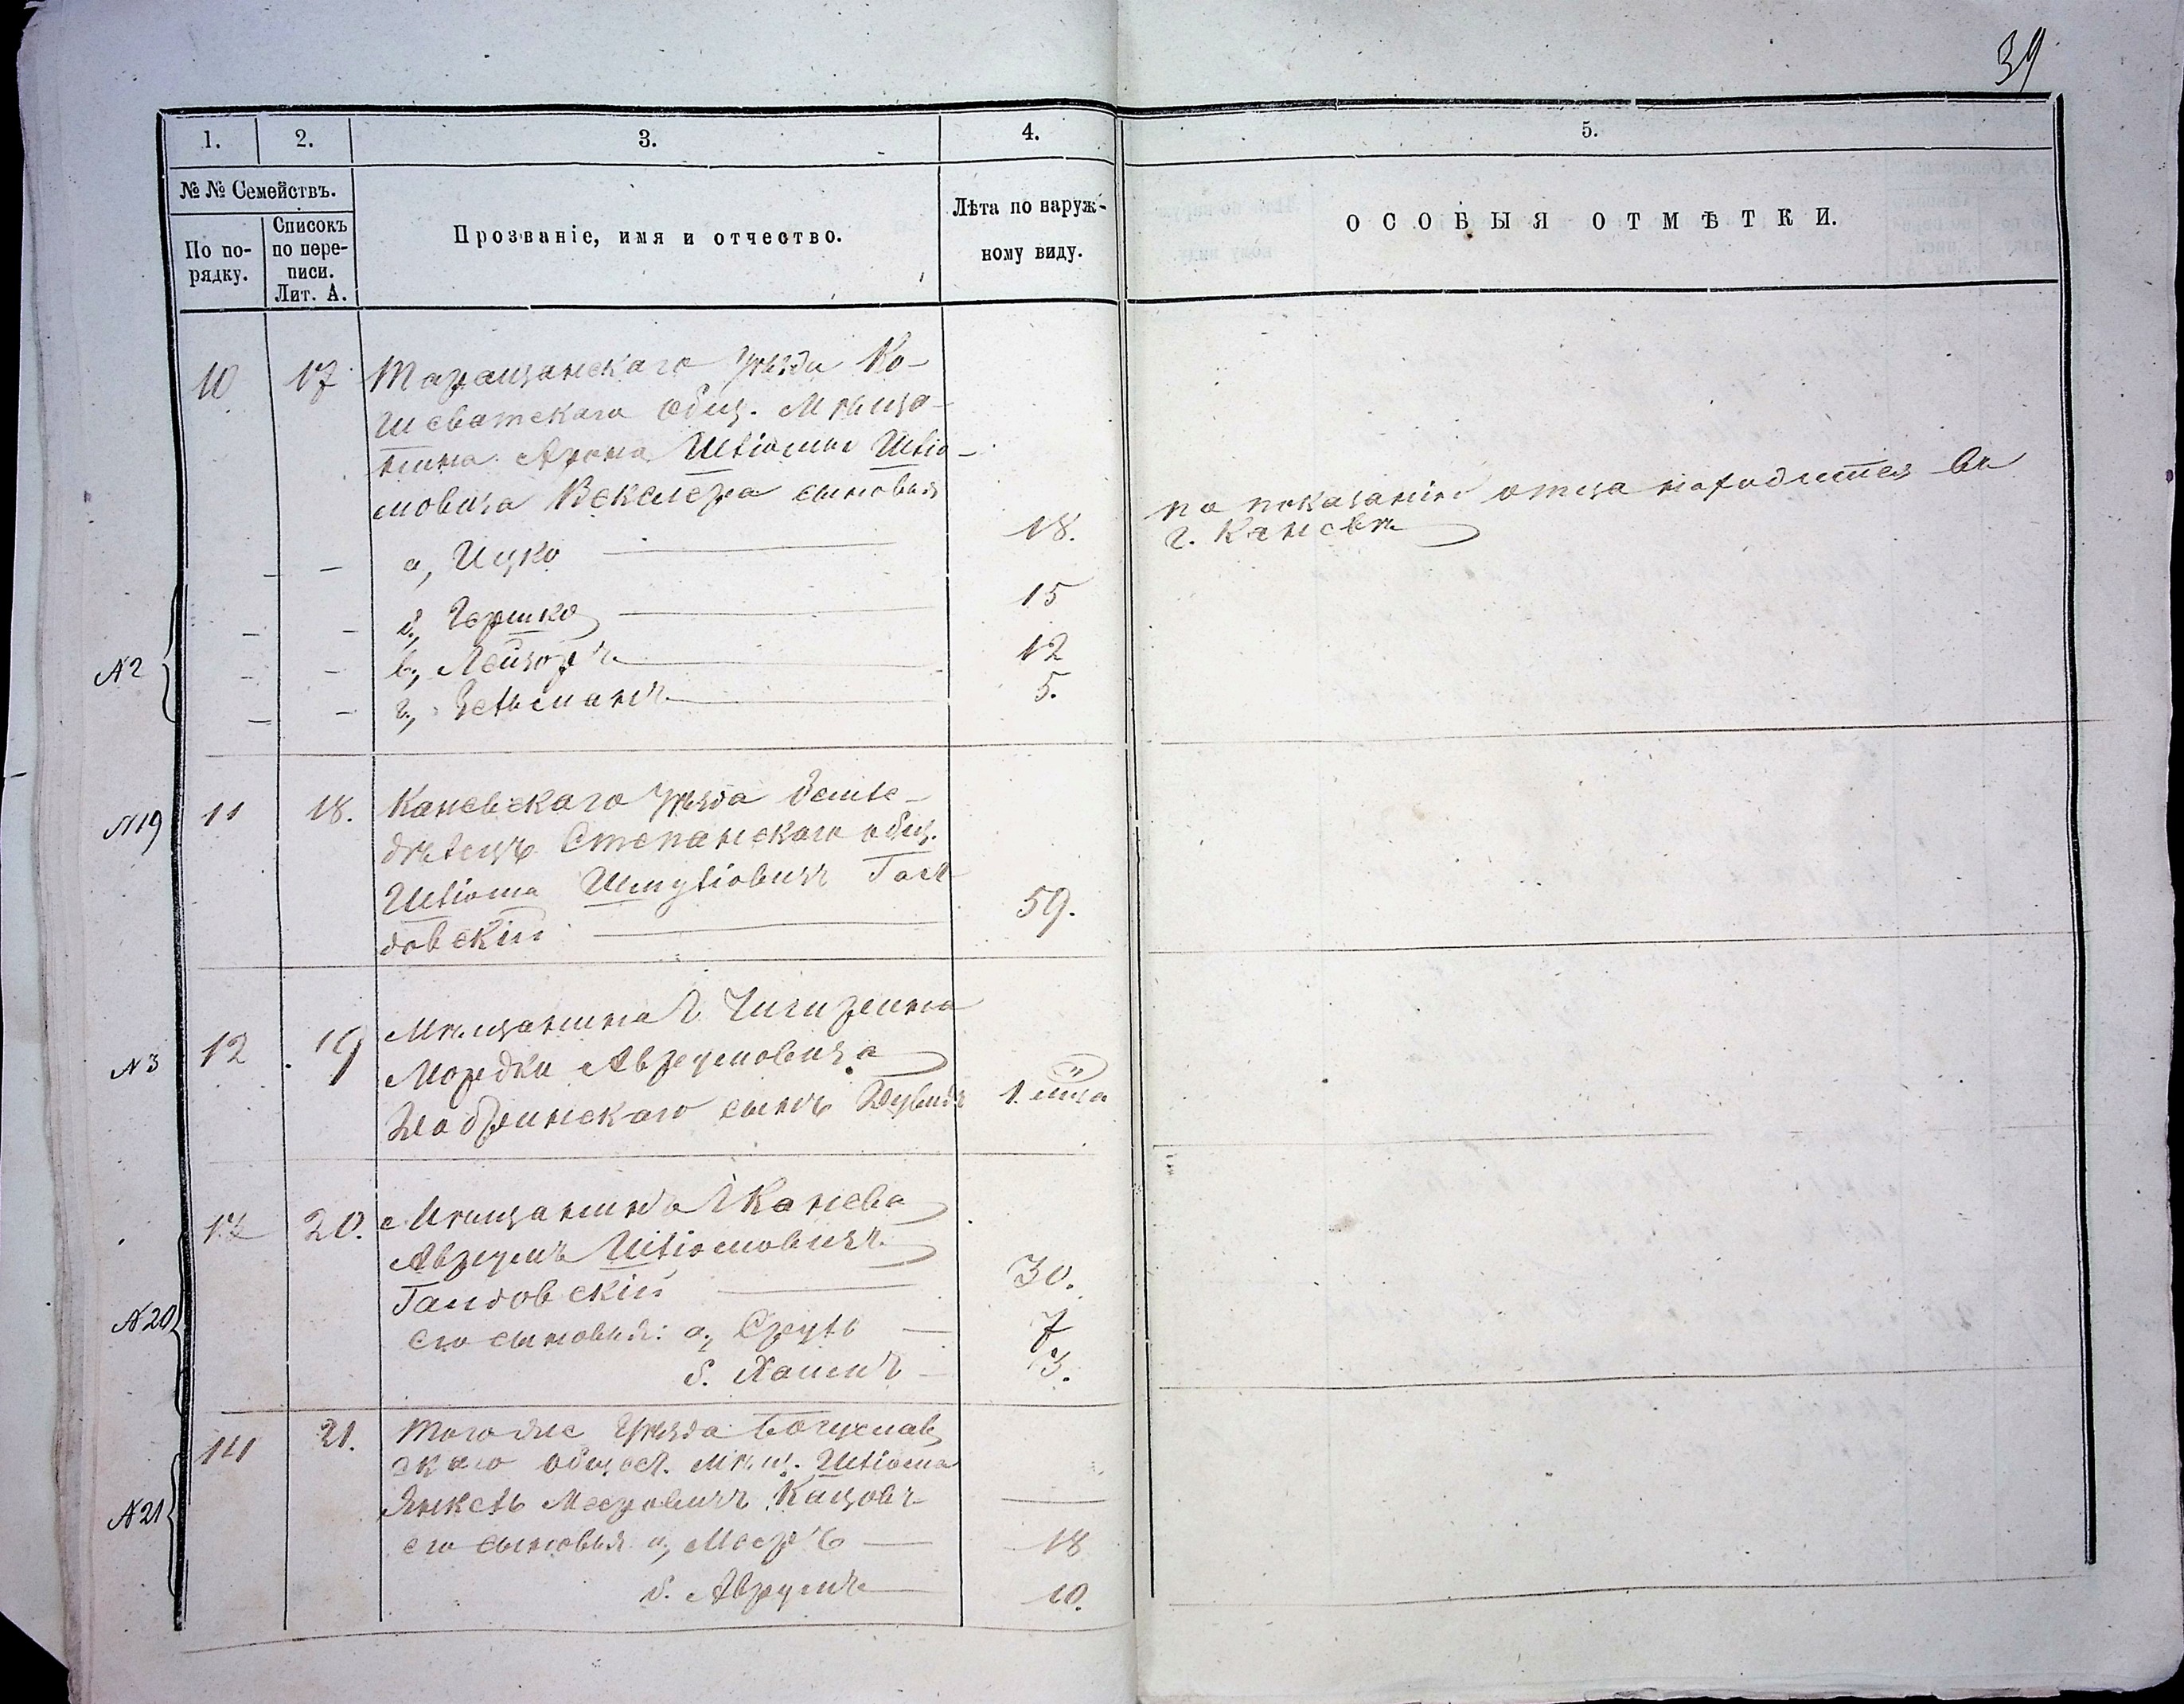 39
1. 2. 3. 4. 5.
№ № Семействъ.
По по-
рядку.
Списокъ
по пере-
писи.
Лит. А.
Прозваніе, имя и отчество.
Лѣта по наруж-
ному виду.
ОСОБЫЯ ОТМѢТКИ.
10 17 Таращанскаго Уѣзда Ко-
шеватскаго общ. Мѣща-
нина Арона Шліомы Шліо-
мовича Векслера сыновья
а, Ицко 18. по показанію отца находится въ
г. Каневѣ
б, Гершко 15
№2 в, Лейзоръ 12
г, Зельманъ 5.
№19 11 18. Каневскаго Уѣзда
Степанскаго общ.
Шліома Шмуліовичъ Гал
довскій 59.
№3 12 19 Мѣщанина г. Чигирина
Мордки Аврумовича
сынъ Дувидъ 1.
20. Мѣщанинъ г. Канева
Аврумъ Шліомовичъ
Галдовскій 30.
№20 его сыновья: а, Сруль 7
б. Хаимъ 3.
14 21. Того же Уѣзда Богуслав
скаго общест. мѣщ. Шліома
№21 Янкель Мееровичъ Кацовъ
его сыновья а, Мееръ 18
б. Аврумъ 10.